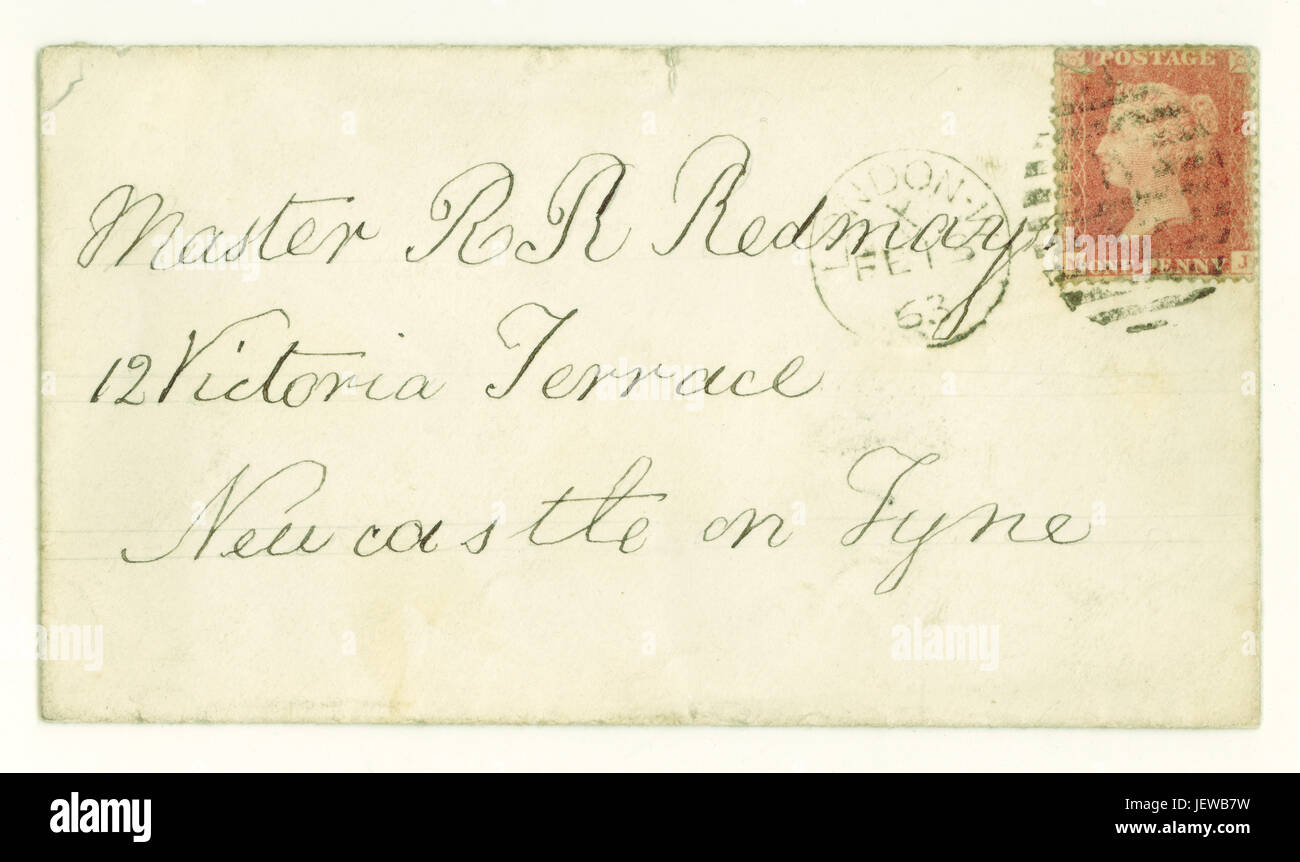 POSTAGE
Master R R Redmayn
LONDON·W
X
FE 13
63
ONE PENNY J
12 Victoria Terrace
Newcastle on Tyne
alamy
Image ID: JEWB7W
www.alamy.com